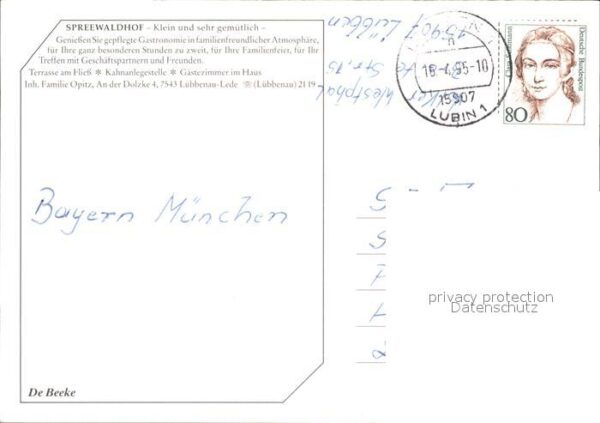 SPREEWALDHOF – Klein und sehr gemütlich –
Genießen Sie gepflegte Gastronomie in familienfreundlicher Atmosphäre,
für Ihre ganz besonderen Stunden zu zweit, für Ihre Familienfeier, für Ihr
Treffen mit Geschäftspartnern und Freunden.
Terrasse am Fließ ✻ Kahnanlegestelle ✻ Gästezimmer im Haus
Inh. Familie Opitz, An der Dolzke 4, 7543 Lübbenau-Lede ☏ (Lübbenau) 21 19
Westphal
Str. 15
15907 Lübben
15907
LUBIN 1
Deutsche Bundespost
80
Bayern München
privacy protection
Datenschutz
De Beeke